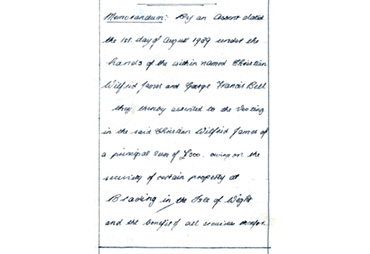 Memorandum: By an Assent dated
the 1st day of August 1969 under the
hands of the within named Christian
Wilfrid James and George Francis Bell
they thereby assented to the Vesting
in the said Christian Wilfrid James of
a principal sum of owing on the
security of certain property at
Brading in the Isle of Wight
and the benefit of all securities therefor